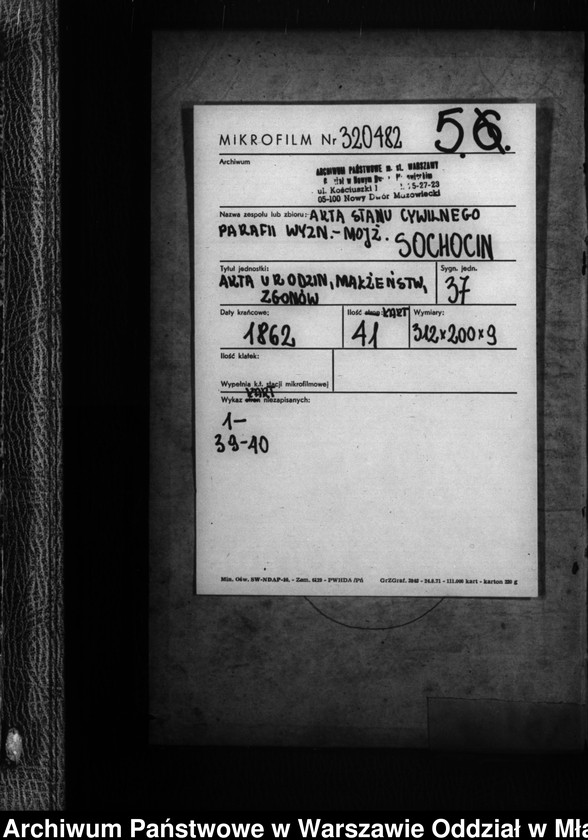 MIKROFILM Nr 320482 5.6.
Archiwum
ARCHIWUM PAŃSTWOWE m. st. WARSZAWY
w Nowym
ul. Kościuszki 5-27-23
05-100 Nowy Dwór Mazowiecki
Nazwa zespołu lub zbioru: AKTA STANU CYWILNEGO
PARAFII WYZN.-MOJŻ. SOCHOCIN
Tytuł jednostki: Sygn. jedn.
AKTA URODZIN, MAŁŻEŃSTW, 37
ZGONÓW
Daty krańcowe: Ilość stron KART Wymiary:
1862 41 312x200x9
Ilość klatek:
Wypełnia k.t. stacji mikrofilmowej
KART
Wykaz stron niezapisanych:
1-
39-40
Min. Ośw. SW-NDAP-M. - Zam. PWHDA GrZGraf. - 111.000 kart - karton 250 g
Archiwum Państwowe w Warszawie Oddział w Mła